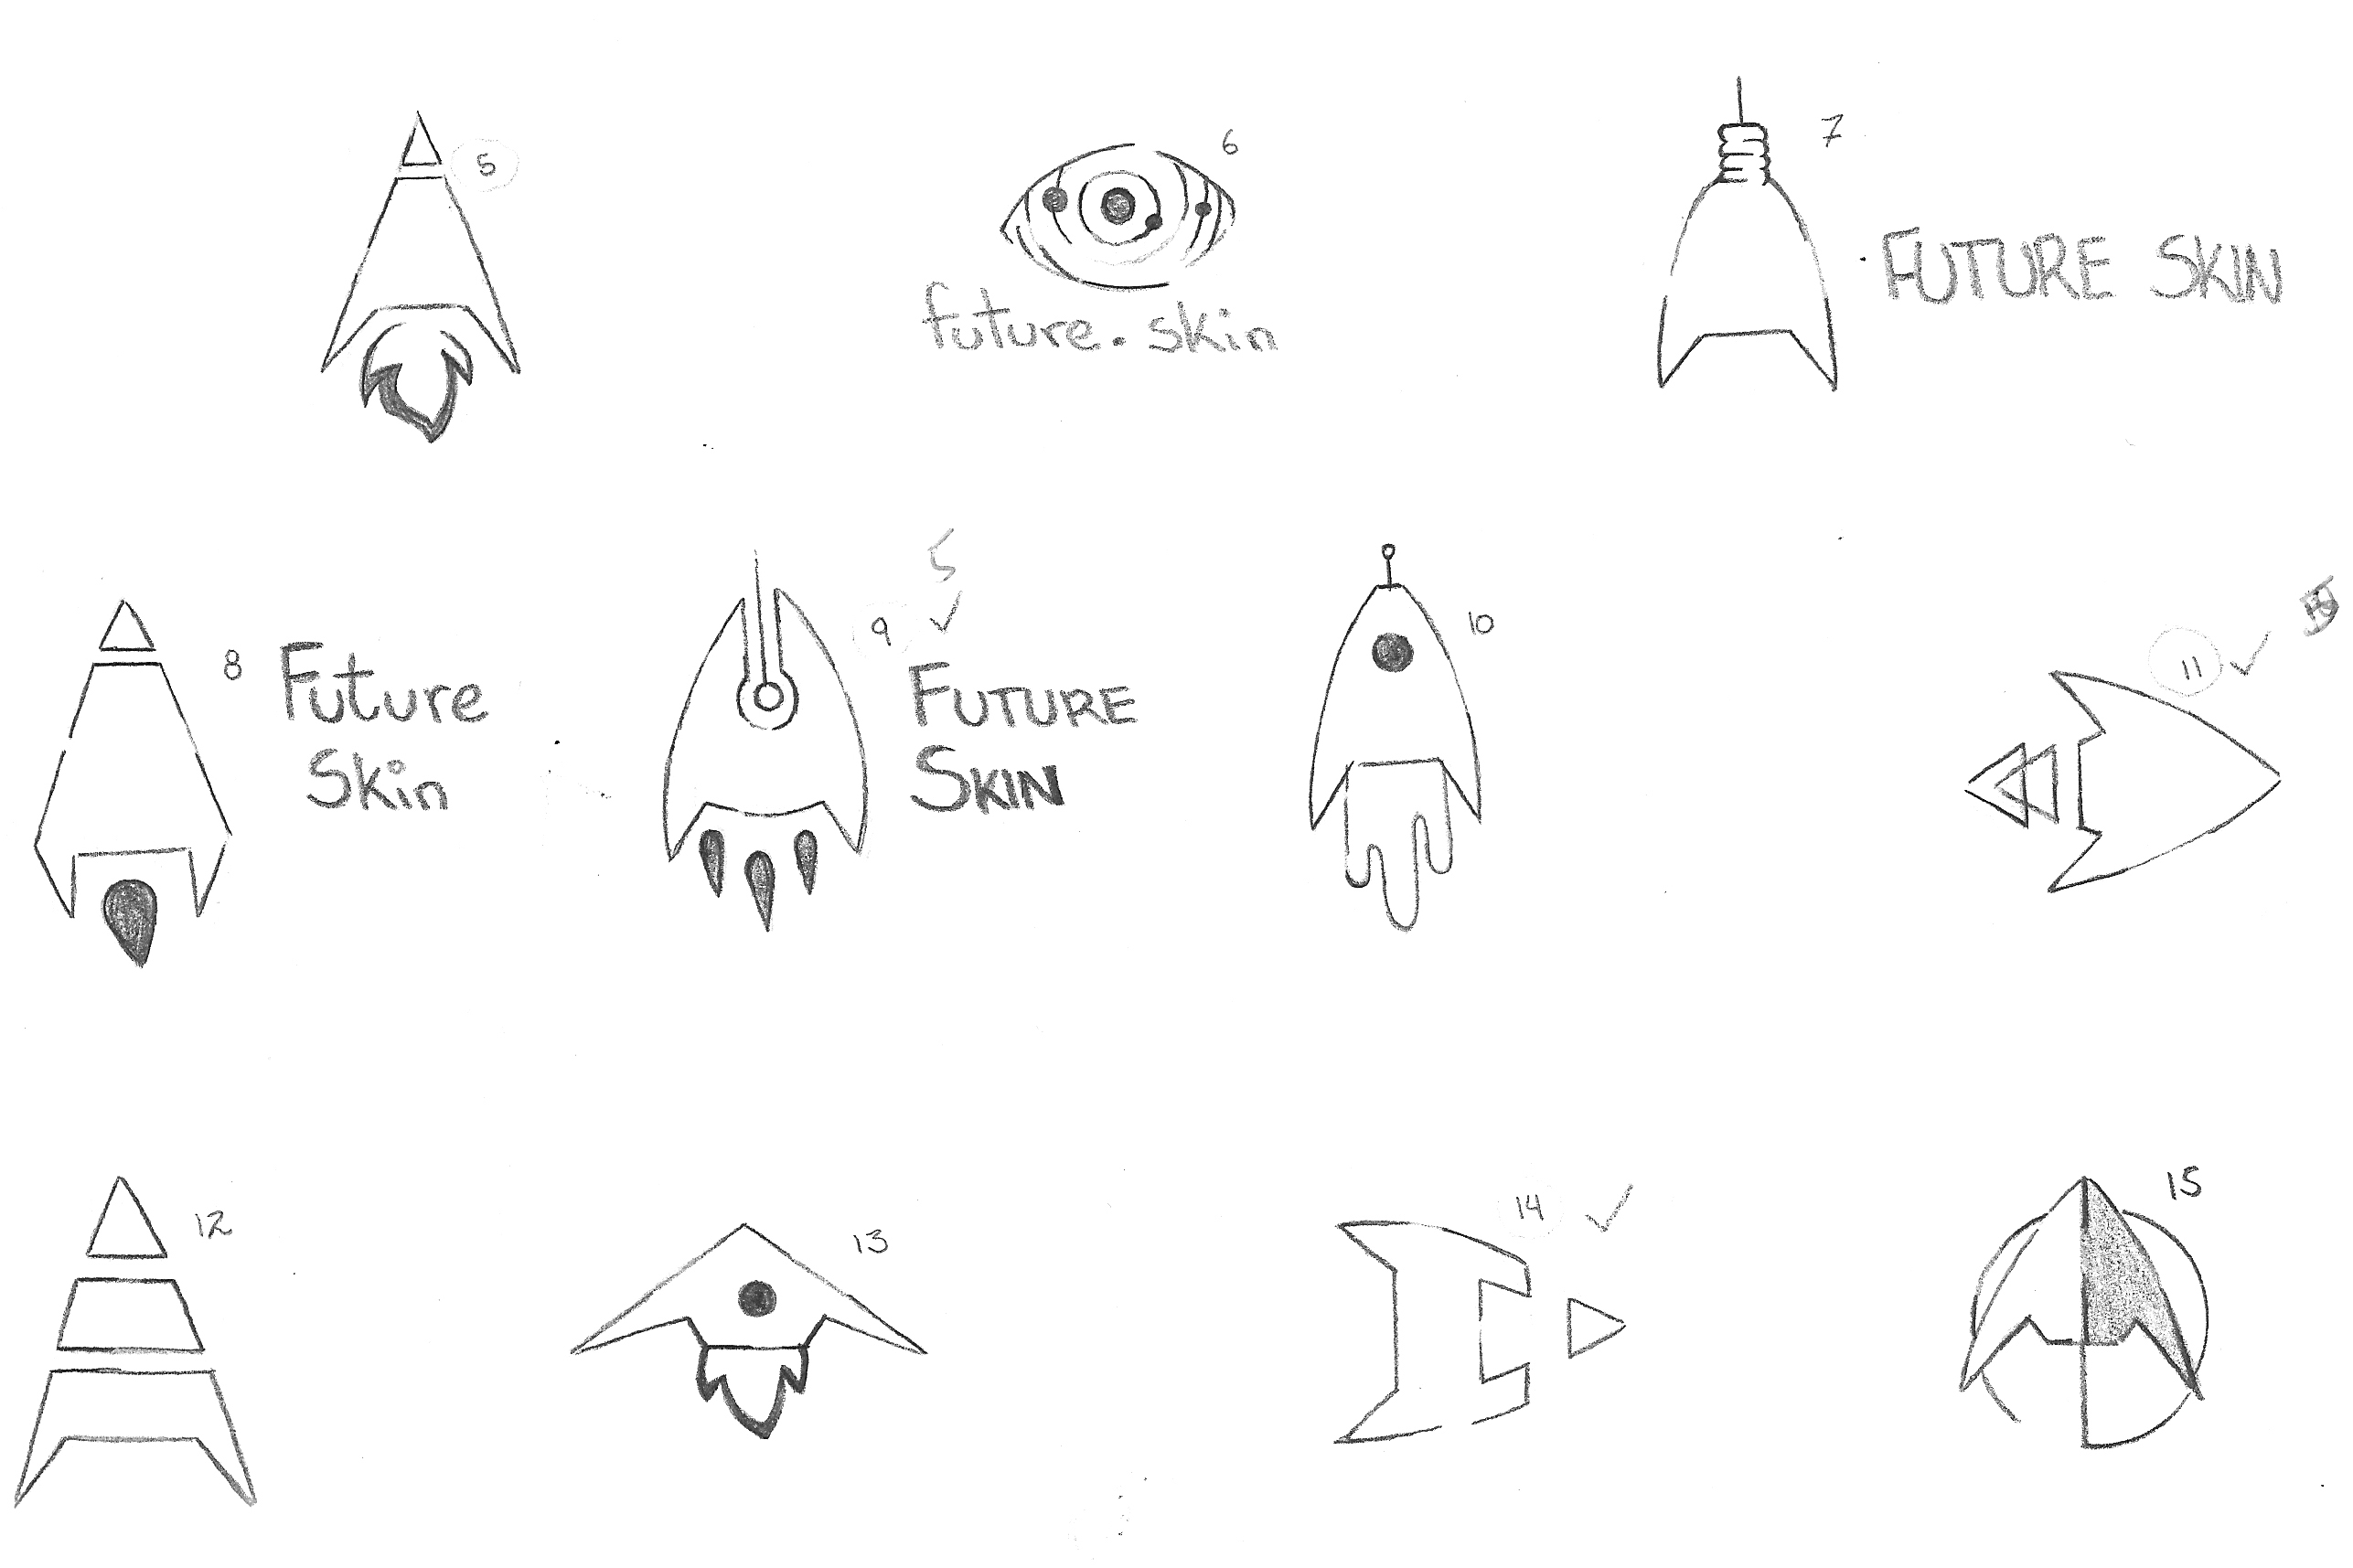 5
6
future.skin
7
FUTURE SKIN
8
Future
Skin
5
9 ✓
FUTURE
SKIN
10
11 ✓
12
13
14 ✓
15